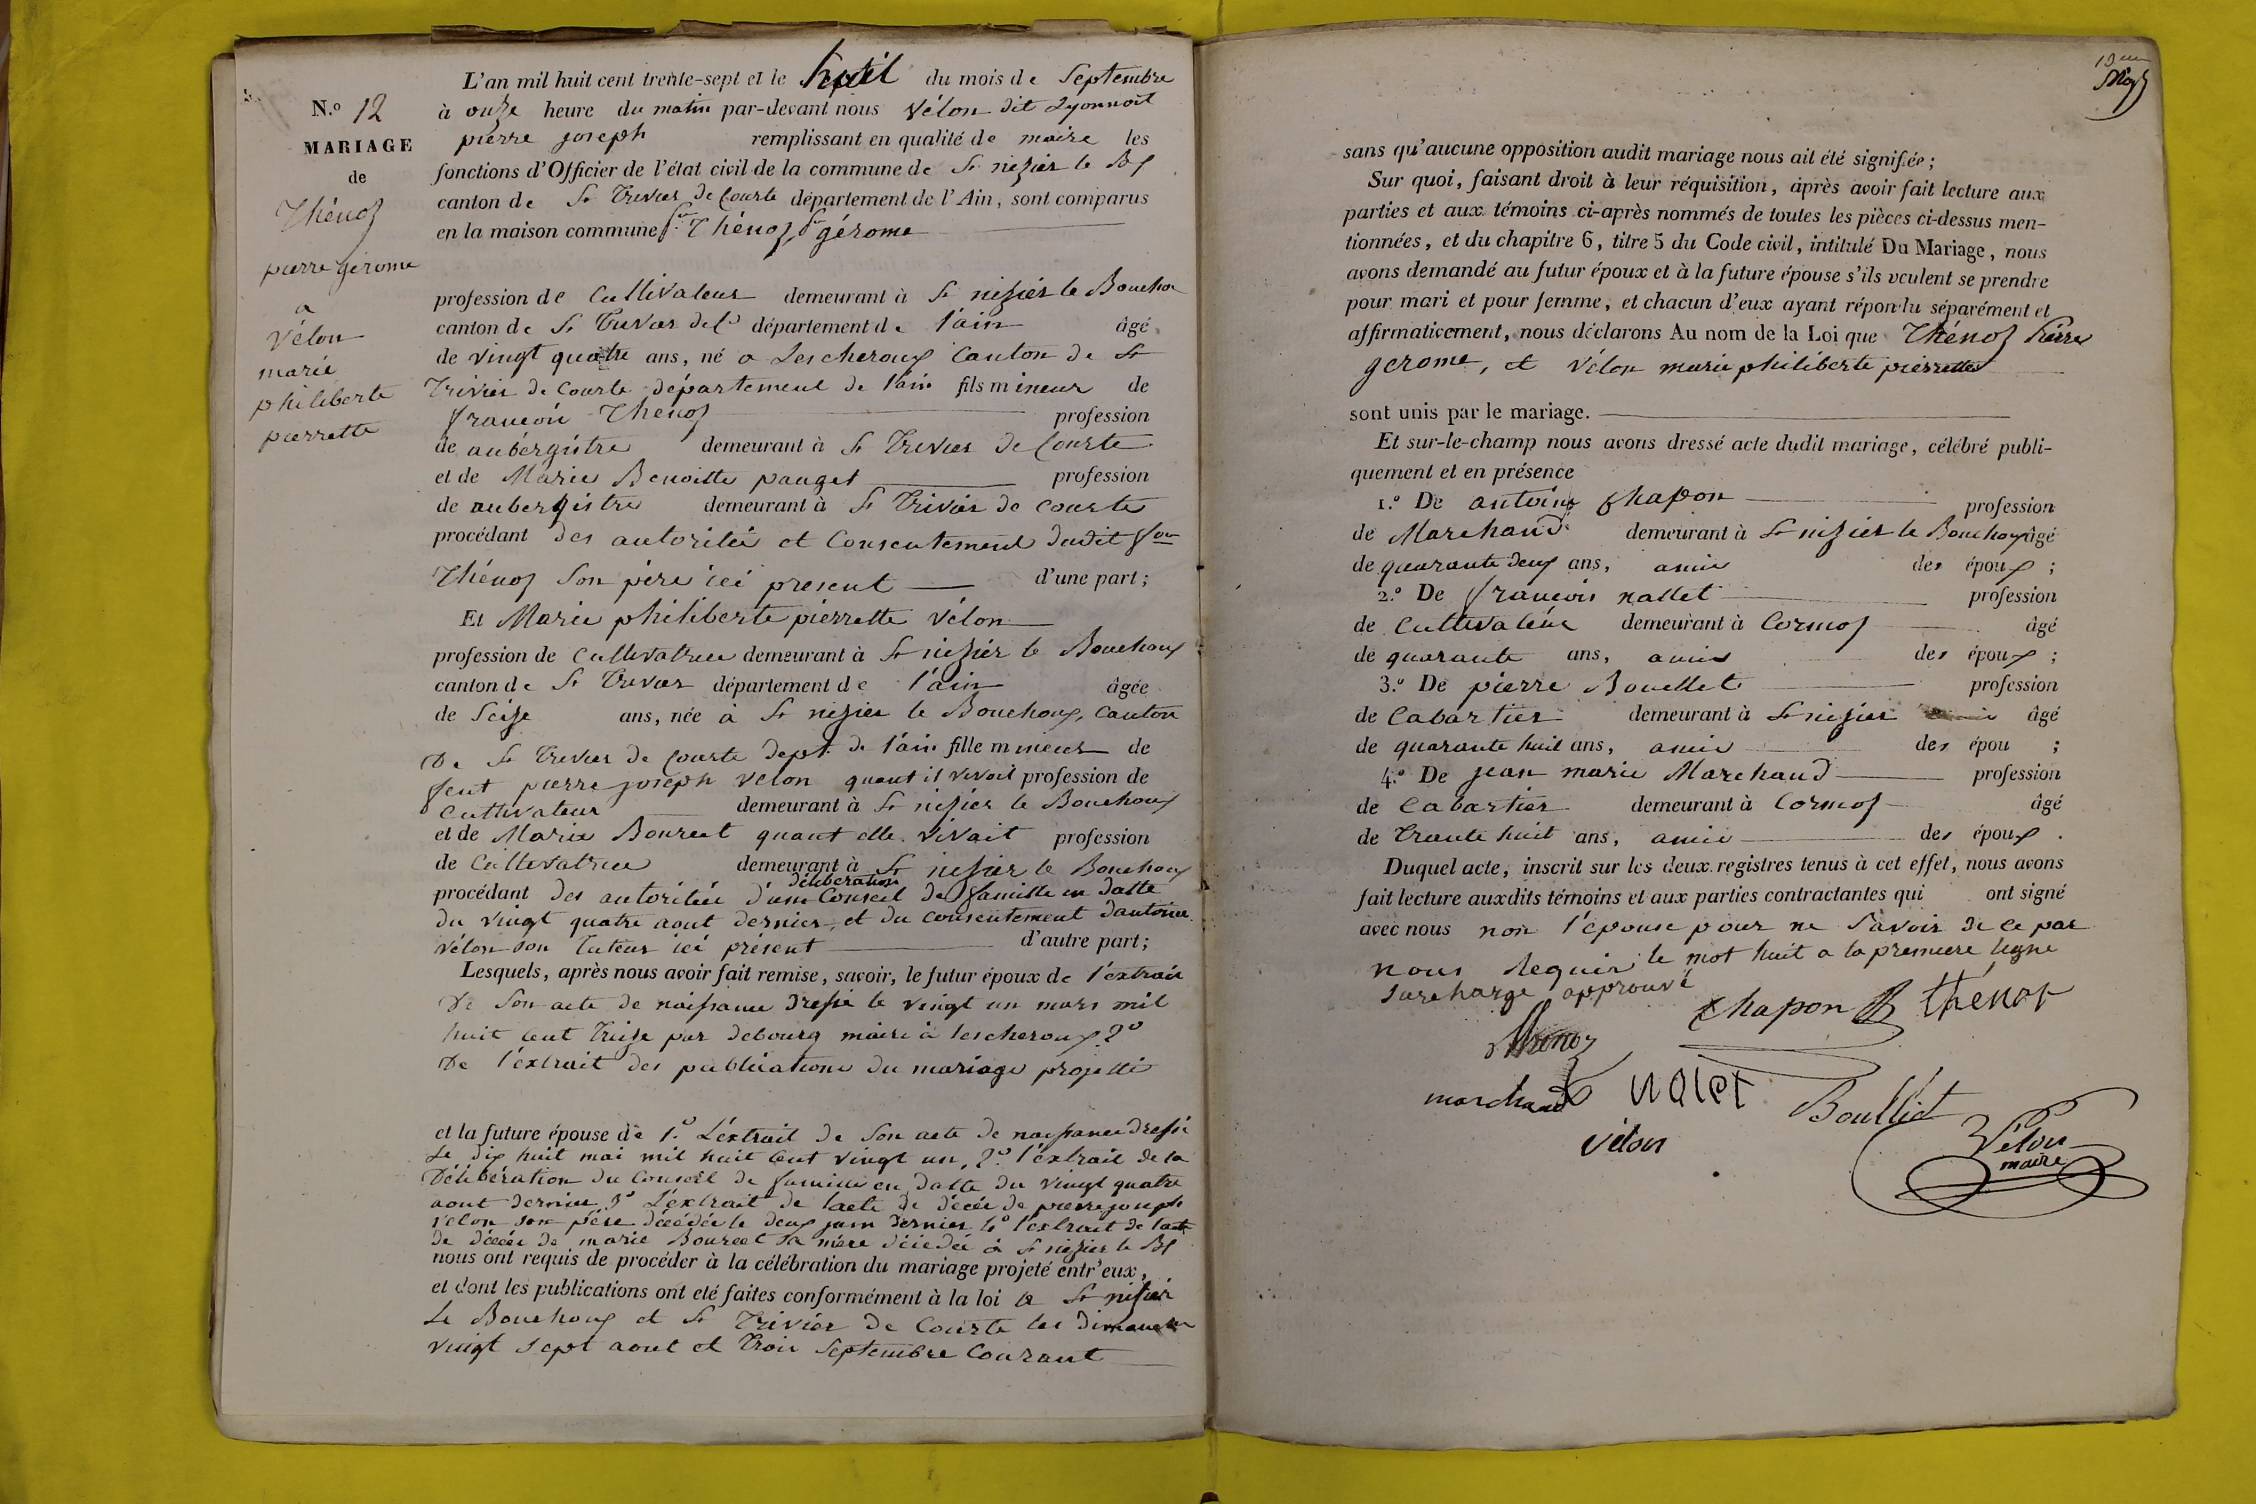 N.o 12
MARIAGE
de
Thénoz
pierre gerome
a
Vélon
marie
philiberte
pierrette
L'an mil huit cent trente-sept et le huit du mois de Septembre
à onze heure du matin par-devant nous Vélon dit Lyonnoit
pierre joseph remplissant en qualité de maire les
fonctions d'Officier de l'état civil de la commune de St nizier le Bx
canton de St Trivier de Courte département de l'Ain, sont comparus
en la maison commune Thénoz gérome
profession de Cultivateur demeurant à St nizier le Bouchou
canton de St Trivier de Cs département de l'ain âgé
de vingt quatre ans, né a Lescheroux Canton de St
Trivier de Courte département de l'ain fils mineur de
francois Thénoz profession
de aubérgitre demeurant à St Trivier de Courte
et de Marie Benoitte pauget profession
de aubergistre demeurant à St Trivier de Courte
procédant des autorités et Consentement dudit fois
Thénoz Son père ici present d'une part;
Et Marie philiberte pierrette Vélon
profession de Cultivatrice demeurant à St nizier le Bouchoux
canton de St Trivier département de l'ain âgée
de Seize ans, née à St nizier le Bouchoux, Canton
De St Trivier de Courte dept de l'ain fille mineur de
feut pierre joseph Velon quant il vivoit profession de
Cultivateur demeurant à St nizier le Bouchoux
et de Marie Bourcet quant elle vivait profession
de Cultivatrice demeurant à St nizier le Bouchoux
procédant des autorités d'une déliberation Conseil de famille en datte
du vingt quatre aout dernier, et du consentement dantoine
Vélon son tuteur ici présent d'autre part;
Lesquels, après nous avoir fait remise, savoir, le futur époux de l'extrait
De Son acte de naissance dressé le vingt un mars mil
huit Cent Treize par debourg maire à lescheroux 2o
De l'éxtrait des publications du mariage projetté
et la future épouse de 1.o L'éxtrait de Son acte de naissance dressé
Le dix huit mai mil huit Cent vingt un, 2.o l'éxtrait de la
Délibération du Conseil de famille en datte du vingt quatre
aout dernier 3o L'éxtrait de lacte de décée de pierre joseph
Velon son père décédée le deux juin dernier 4o l'extrait de lacte
de décée de marie Bourcet sa mère décédée à St nizier le Bx
nous ont requis de procéder à la célébration du mariage projeté entr'eux,
et dont les publications ont été faites conformément à la loi a St nizier
Le Bouchoux et St Trivier de Courte les dimanche
vingt sept aout et trois Septembre Courant
sans qu'aucune opposition audit mariage nous ait été signifiée;
Sur quoi, faisant droit à leur réquisition, après avoir fait lecture aux
parties et aux témoins ci-après nommés de toutes les pièces ci-dessus men-
tionnées, et du chapitre 6, titre 5 du Code civil, intitulé Du Mariage, nous
avons demandé au futur époux et à la future épouse s'ils veulent se prendre
pour mari et pour femme, et chacun d'eux ayant répondu séparément et
affirmativement, nous déclarons Au nom de la Loi que Thénoz Pierre
gerome, et Vélon marie philiberte pierrette
sont unis par le mariage.
Et sur-le-champ nous avons dressé acte dudit mariage, célébré publi-
quement et en présence
1.o De antoine Chapon profession
de Marchand demeurant à St nizier le Bouchoux âgé
de quarante deux ans, amis des époux;
2.o De francois nallet profession
de Cultivatéur demeurant à Cormoz âgé
de quarante ans, amis des époux;
3.o De pierre Bouellet profession
de Cabartier demeurant à St nizier âgé
de quarante huit ans, amis des épou ;
4.o De jean marie Marchand profession
de Cabartier demeurant à Cormoz âgé
de Trante huit ans, amis des époux.
Duquel acte, inscrit sur les deux registres tenus à cet effet, nous avons
fait lecture auxdits témoins et aux parties contractantes qui ont signé
avec nous non l'épouse pour ne Savoir de ce par
nous Requis le mot huit a la premiere ligne
surcharge approuvé
Chapon thénoz
thénoz
marchand nalet Boulliet
Vélon
Vélon
maire